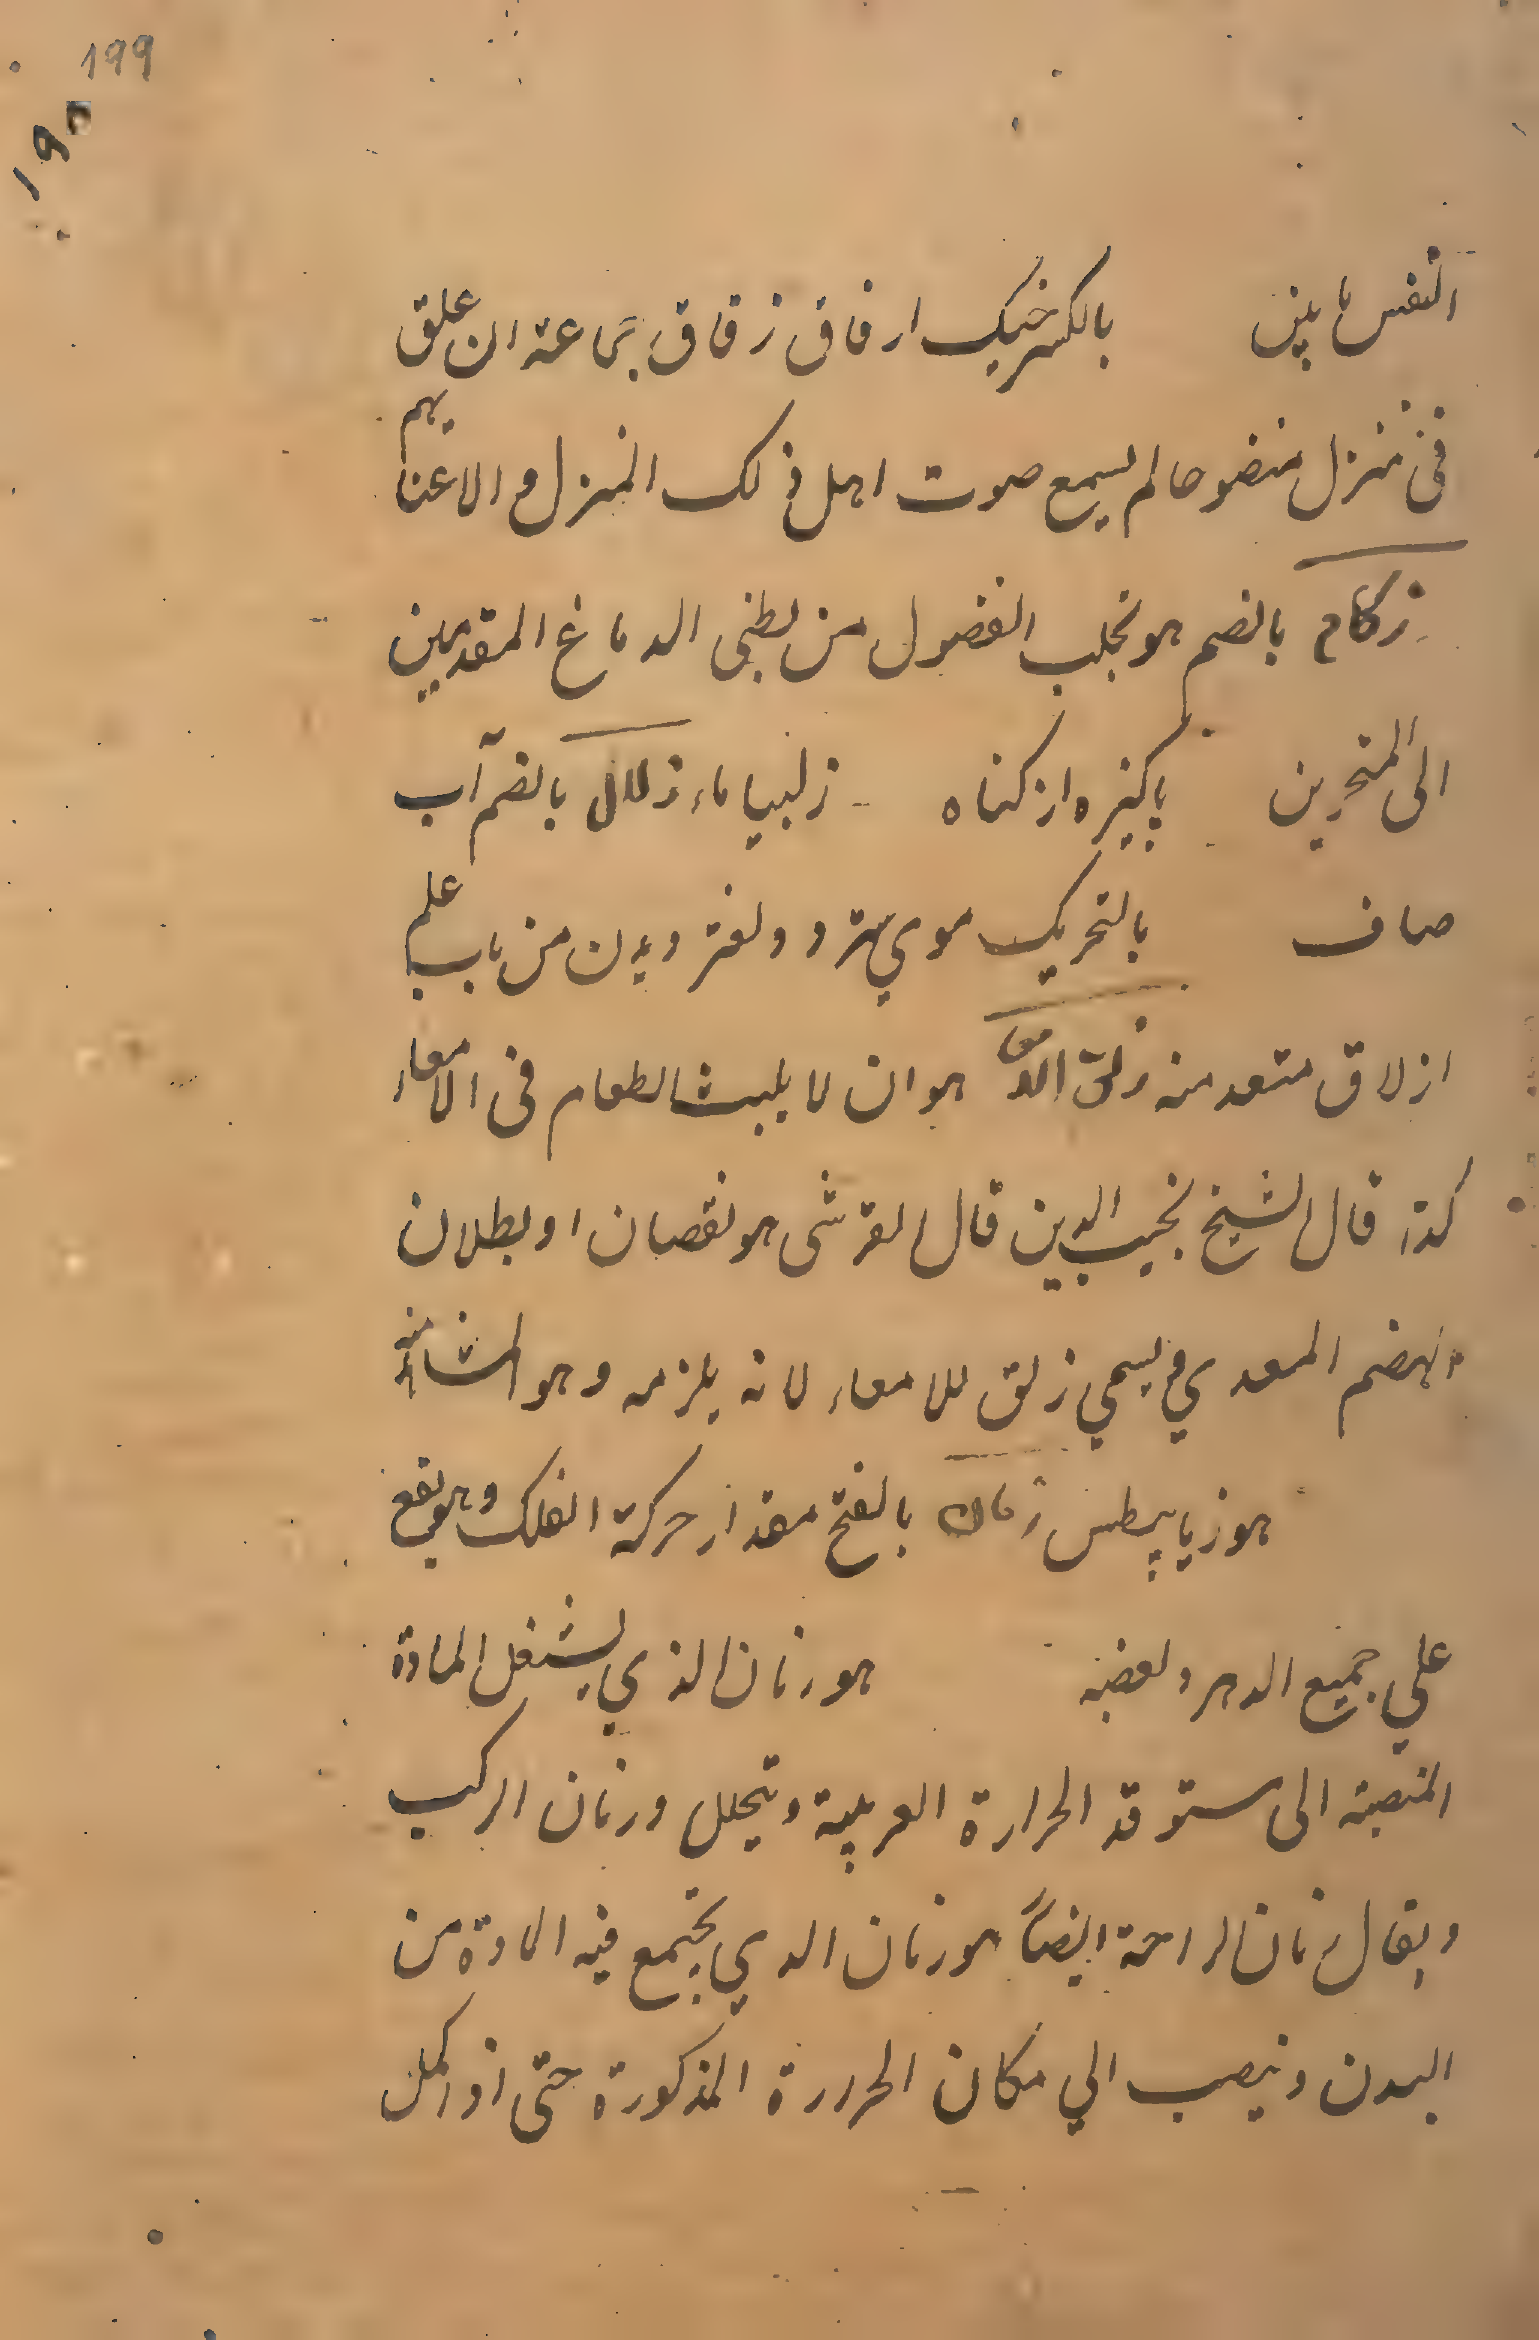 199
19
النفس ما بين بالكسر خيك ارقاق زقاق جماعة ان علق
فى منزل منضوحا لم يسمع صوت اهل ذلك المنزل والاغنا بهم
زكام بالضم هو تجلب الفضول من بطنى الدماغ المقدمين
الى المنخرين پاكيزه از كناه زلبيا ماء زلال بالضم آب
صاف بالتحريك موي سترد ولغزويدن من باب علم
ازلاق متعد منه زلق الامعا هو ان لا يلبث الطعام فى الامعاء
كذا قال الشيخ نجيب الدين قال القرشى هو نقصان او بطلان
الهضم المعدي ويسمي زلق للامعاء لانه يلزمه وهو المشاء منه
هو زيابيطس زمان بالفتح مقدار حركة الفلك وهو يقع
علي جميع الدهر وبعضه هو زمان الذي يشتغل المادة
المنصبة الى ستوقد الحرارة الغريبة ويتحلل وزمان الركب
ويقال زمان الراحة ايضاً هو زمان الذي يجتمع فيه المادة من
البدن وينصب الي مكان الحررة المذكورة حتى اذا كمل